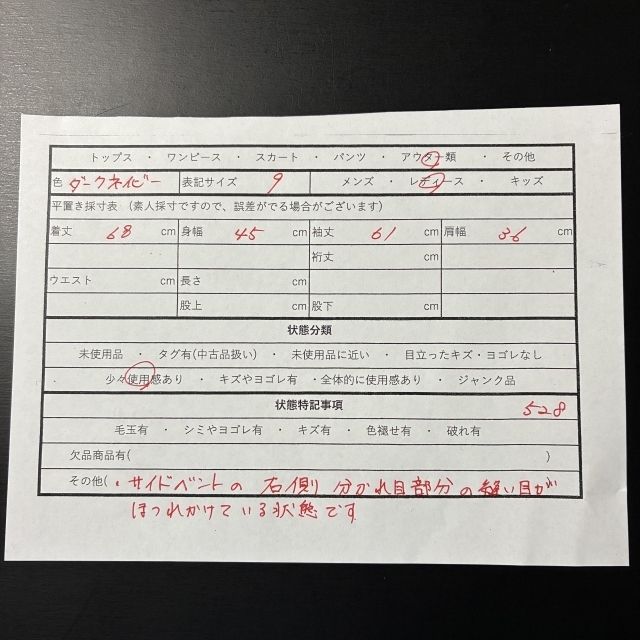 トップス ・ ワンピース ・ スカート ・ パンツ ・ アウター類 ・ その他
色 ダークネイビー 表記サイズ 9 メンズ ・ レディース ・ キッズ
平置き採寸表 （素人採寸ですので、誤差がでる場合がございます）
着丈 68 cm 身幅 45 cm 袖丈 61 cm 肩幅 36 cm
裄丈 cm
ウエスト cm 長さ cm
股上 cm 股下 cm
状態分類
未使用品 ・ タグ有(中古品扱い) ・ 未使用品に近い ・ 目立ったキズ・ヨゴレなし
少々使用感あり ・ キズやヨゴレ有 ・全体的に使用感あり ・ ジャンク品
状態特記事項 528
毛玉有 ・ シミやヨゴレ有 ・ キズ有 ・ 色褪せ有 ・ 破れ有
欠品商品有( )
その他( ・サイドベントの 右側 分かれ目部分の縫い目が
ほつれかけている状態です